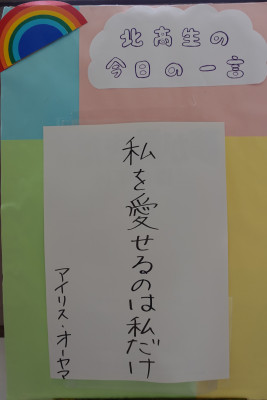 北高生の
今日の一言
私を愛せるのは私だけ
アイリス・オーヤマ